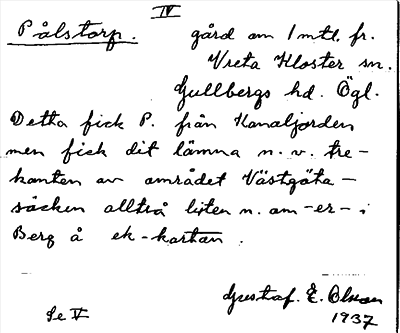 IV
Pålstorp. gård om 1 mtl. fr.
Vreta Kloster sn.
Gullbergs hd. Ögl.
Detta fick P. från Kanaljorden
men fick dit lämna n. v. tre-
kanten av området Västgöta-
säcken alltså liten n. om -er- i
Berg å ek-kartan.
Gustaf. E. Olsson
Se V 1937